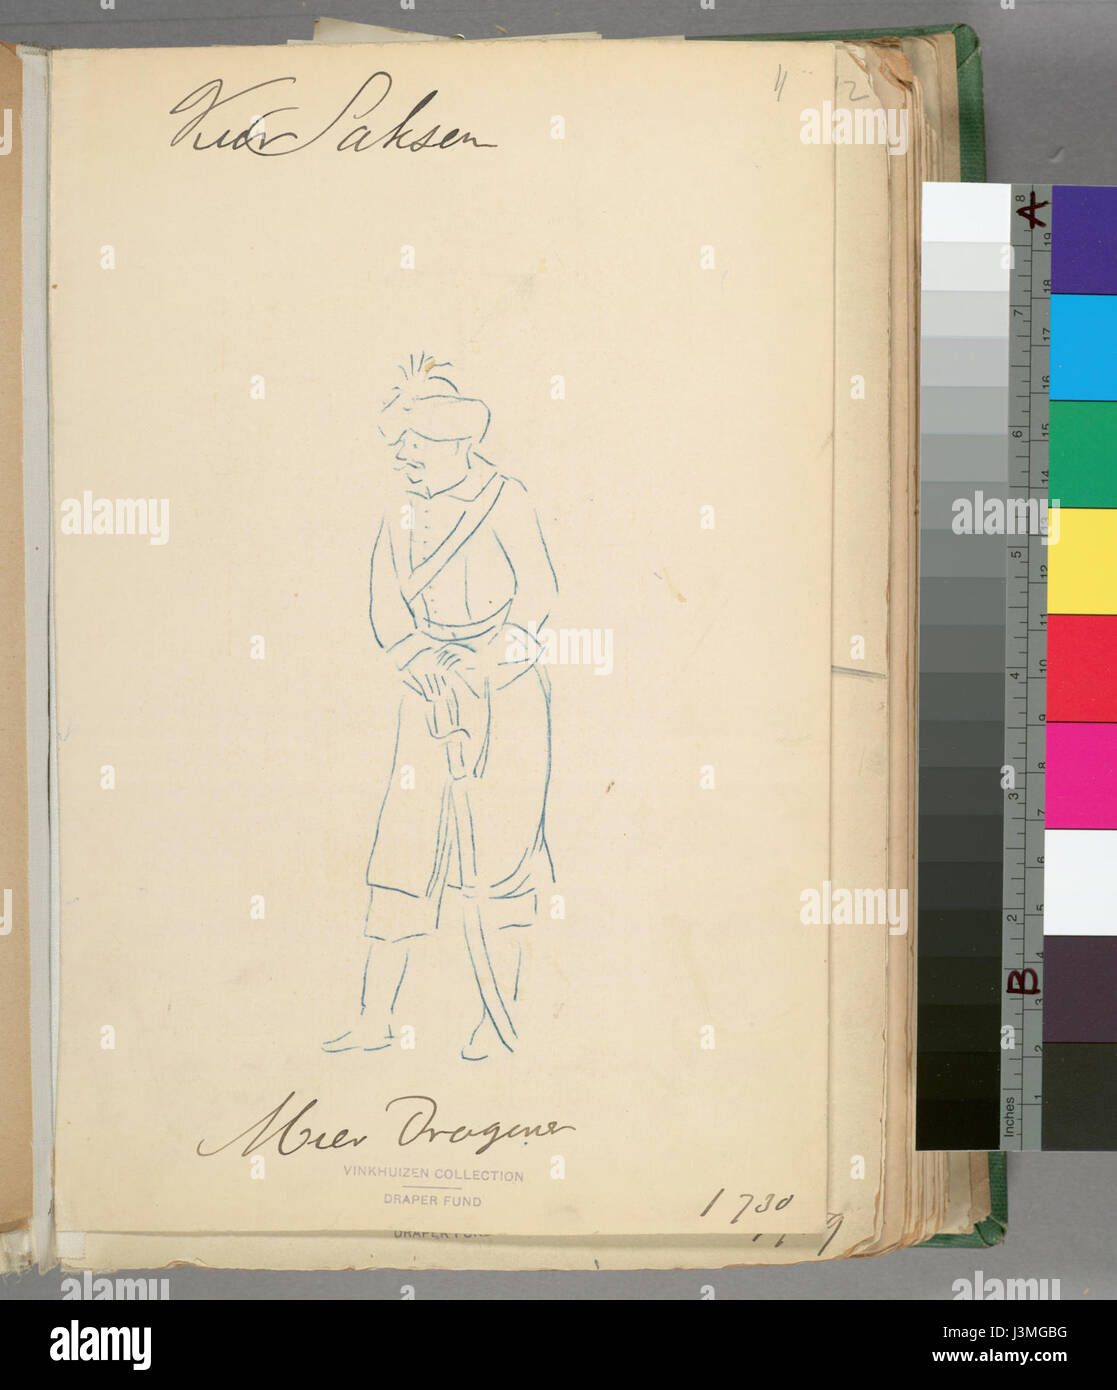 Kur Saksen
11 12
Mier Dragoner
VINKHUIZEN COLLECTION
DRAPER FUND
1730
DRAPER FUND
A
B
Inches
1 2 3 4 5 6 7 8
1 2 3 4 5 6 7 8 9 10 11 12 13 14 15 16 17 18 19
alamy
Image ID: J3MGBG
www.alamy.com